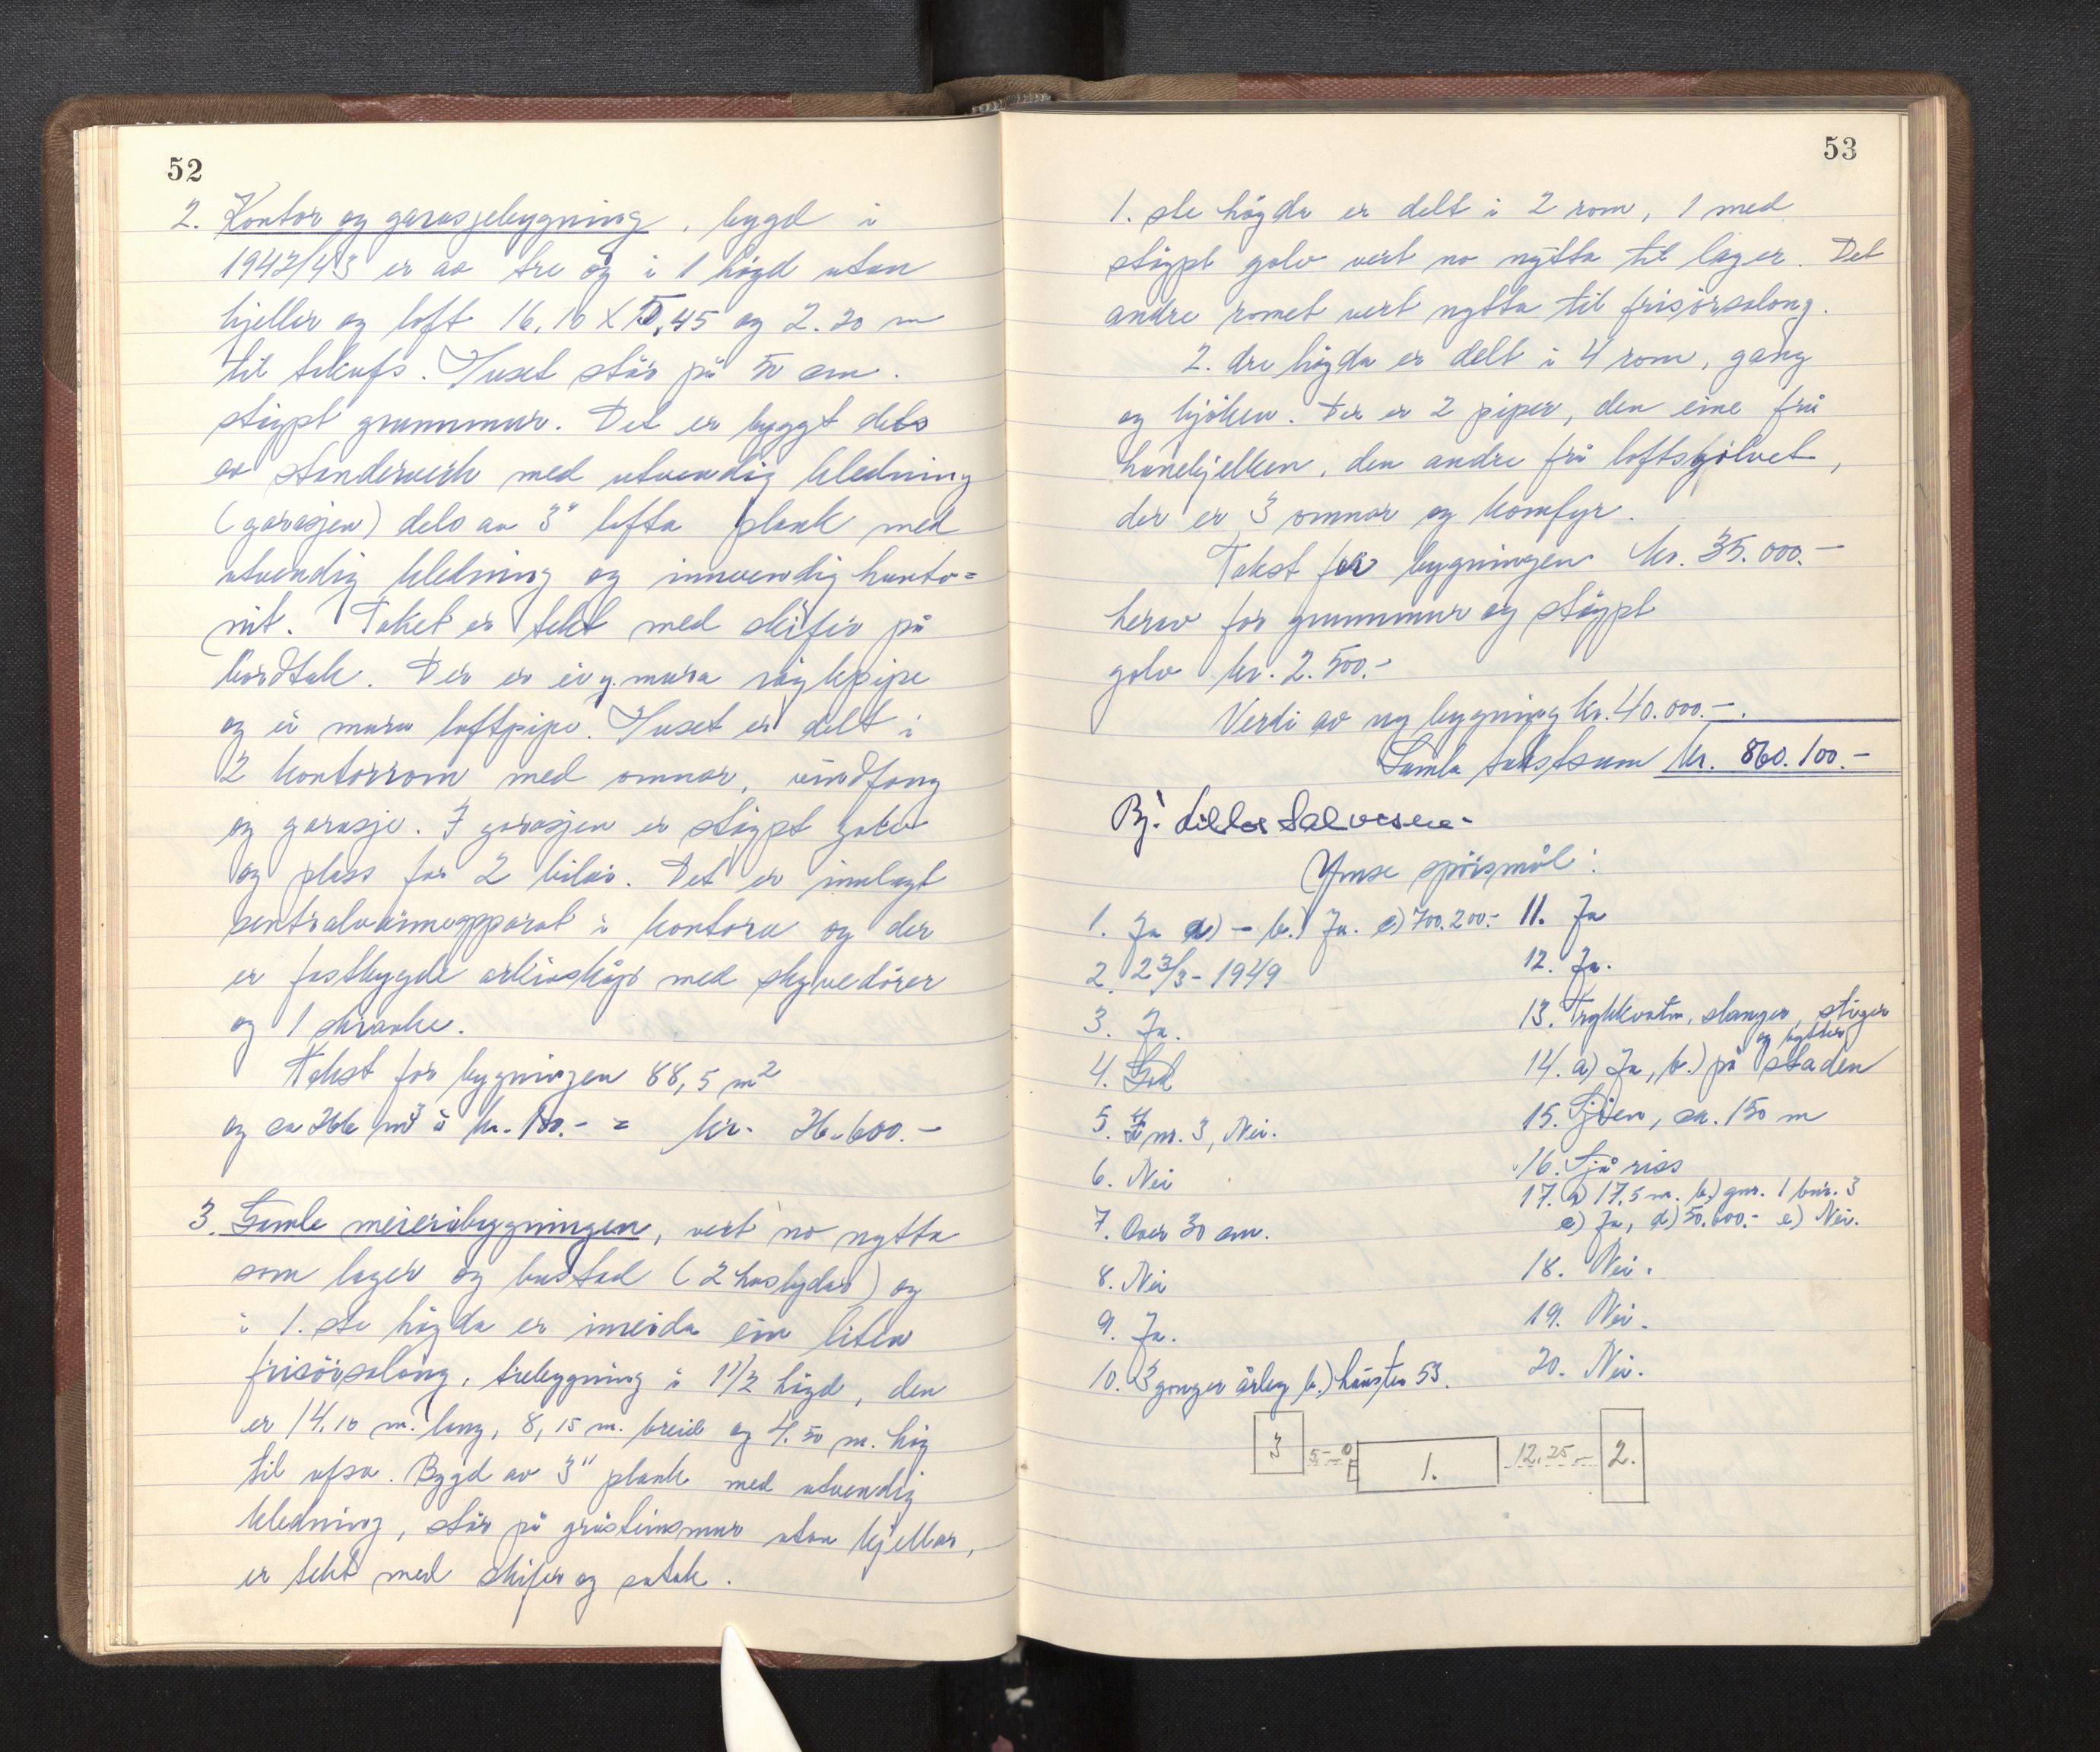 52
2. Kontor og garasjebygning, bygd i
1942/43 er av tre og i 1 högd utan
kjeller og loft 16,10 X 5,45 og 2.20 m
til takufs. Huset står på 50 cm.
stöypt grunnmur. Det er byggt dels
av standerverk med utvendig kledning
(garasjen) dels av 3" lafta plank med
utvendig kledning og innvendig hunto=
nit. Taket er tekt med skifer på
bordtak. Der er ei g. mura röykpipe
og ei mura loftpipe. Huset er delt i
2 kontorrom med omnar, vindfang
og garasje. I garasjen er stöypt golv
og plass for 2 bilar. Det er innlagt
sentralvarmeapparat i kontora og der
er fastbygde arkivskåp med skyvedörer
og 1 skranke.
Takst for bygningen 88,5 m2
og ca 266 m3 à kr. 100.- = kr. 26.600.-
3. Gamle meieribygningen, vert no nytta
som lager og bustad (2 huslydar) og
i 1. ste högda er innreida ein liten
frisörsalong, trebygning i 1 1/2 högd, den
er 14.10 m. lang, 8,15 m. breid og 4.50 m. hög
til ufsa. Bygd av 3" plank med utvendig
kledning, står på gråsteinsmur utan kjellar,
er tekt med skifer og sutak.
53
1. ste högda er delt i 2 rom, 1 med
stöypt golv vert no nytta til lager. Det
andre romet vert nytta til frisörsalong.
2. dre högda er delt i 4 rom, gang
og kjöken. Der er 2 piper, den eine frå
hanebjelken, den andre frå loftsgolvet,
der er 3 omnar og komfyr.
Takst for bygningen kr. 35.000.-
herav for grunnmur og stöypt
golv kr. 2.500.-
Verdi av ny bygning kr. 40.000.-.
Samla takstsum kr. 860.100.-
Bj. Salvesen
Ymse spörsmål:
1. Ja a) - b.) Ja. c) 700.200.-
2. 23/3 - 1949
3. Ja.
4. God
5. I nr. 3, Nei.
6. Nei
7. Over 30 cm.
8. Nei
9. Ja.
10. 3 gonger årleg b.) hausten 53.
11. Ja
12. Ja.
13. Trykkvatn, slanger, stiger
og bytter
14. a) Ja, b.) på staden
15. Sjöen, ca. 150 m
16. Sjå riss
17. a) 17,5 m. b.) gnr. 1 bnr. 3
c) Ja, d) 50.600.- e) Nei.
18. Nei.
19. Nei.
20. Nei.
3 5- 1. 12,25 - 2.